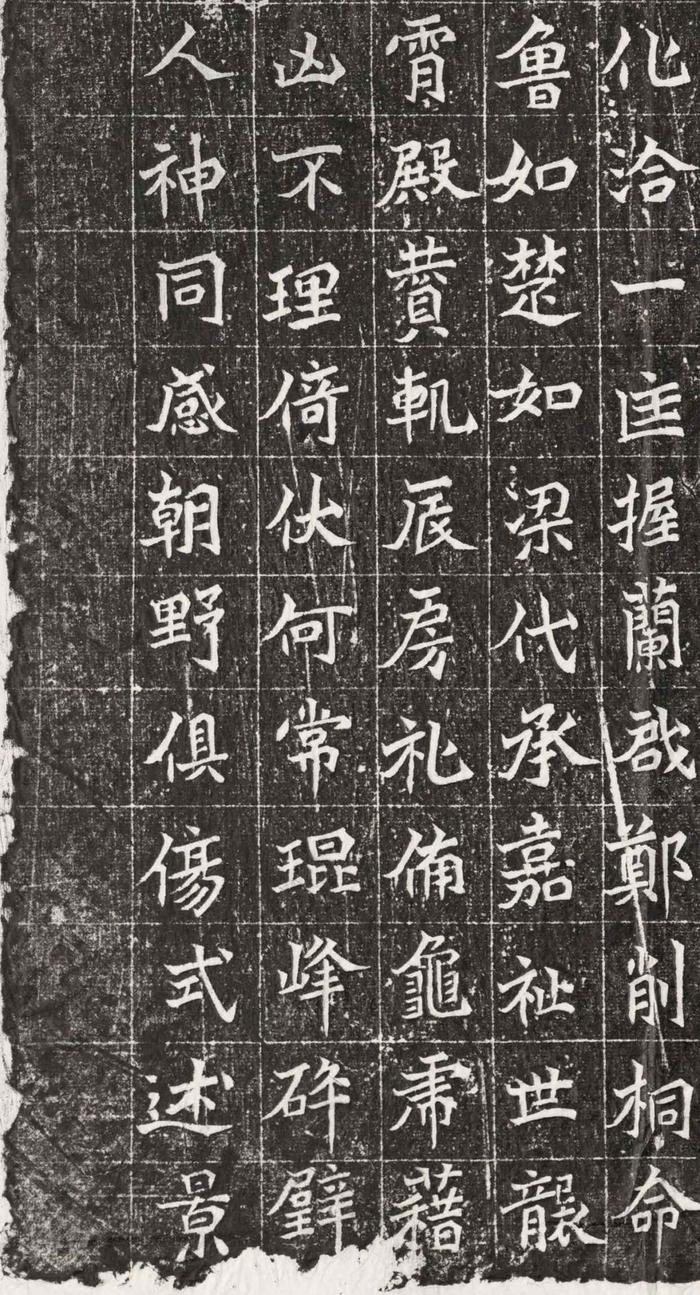 化洽一匡握蘭啟鄭削桐命
魯如楚如梁代承嘉祉世襲
霄殿賛軓辰房礼俻龜虎藉
凶不理倚伏何常琨峰碎璧
人神同感朝野俱傷式述景